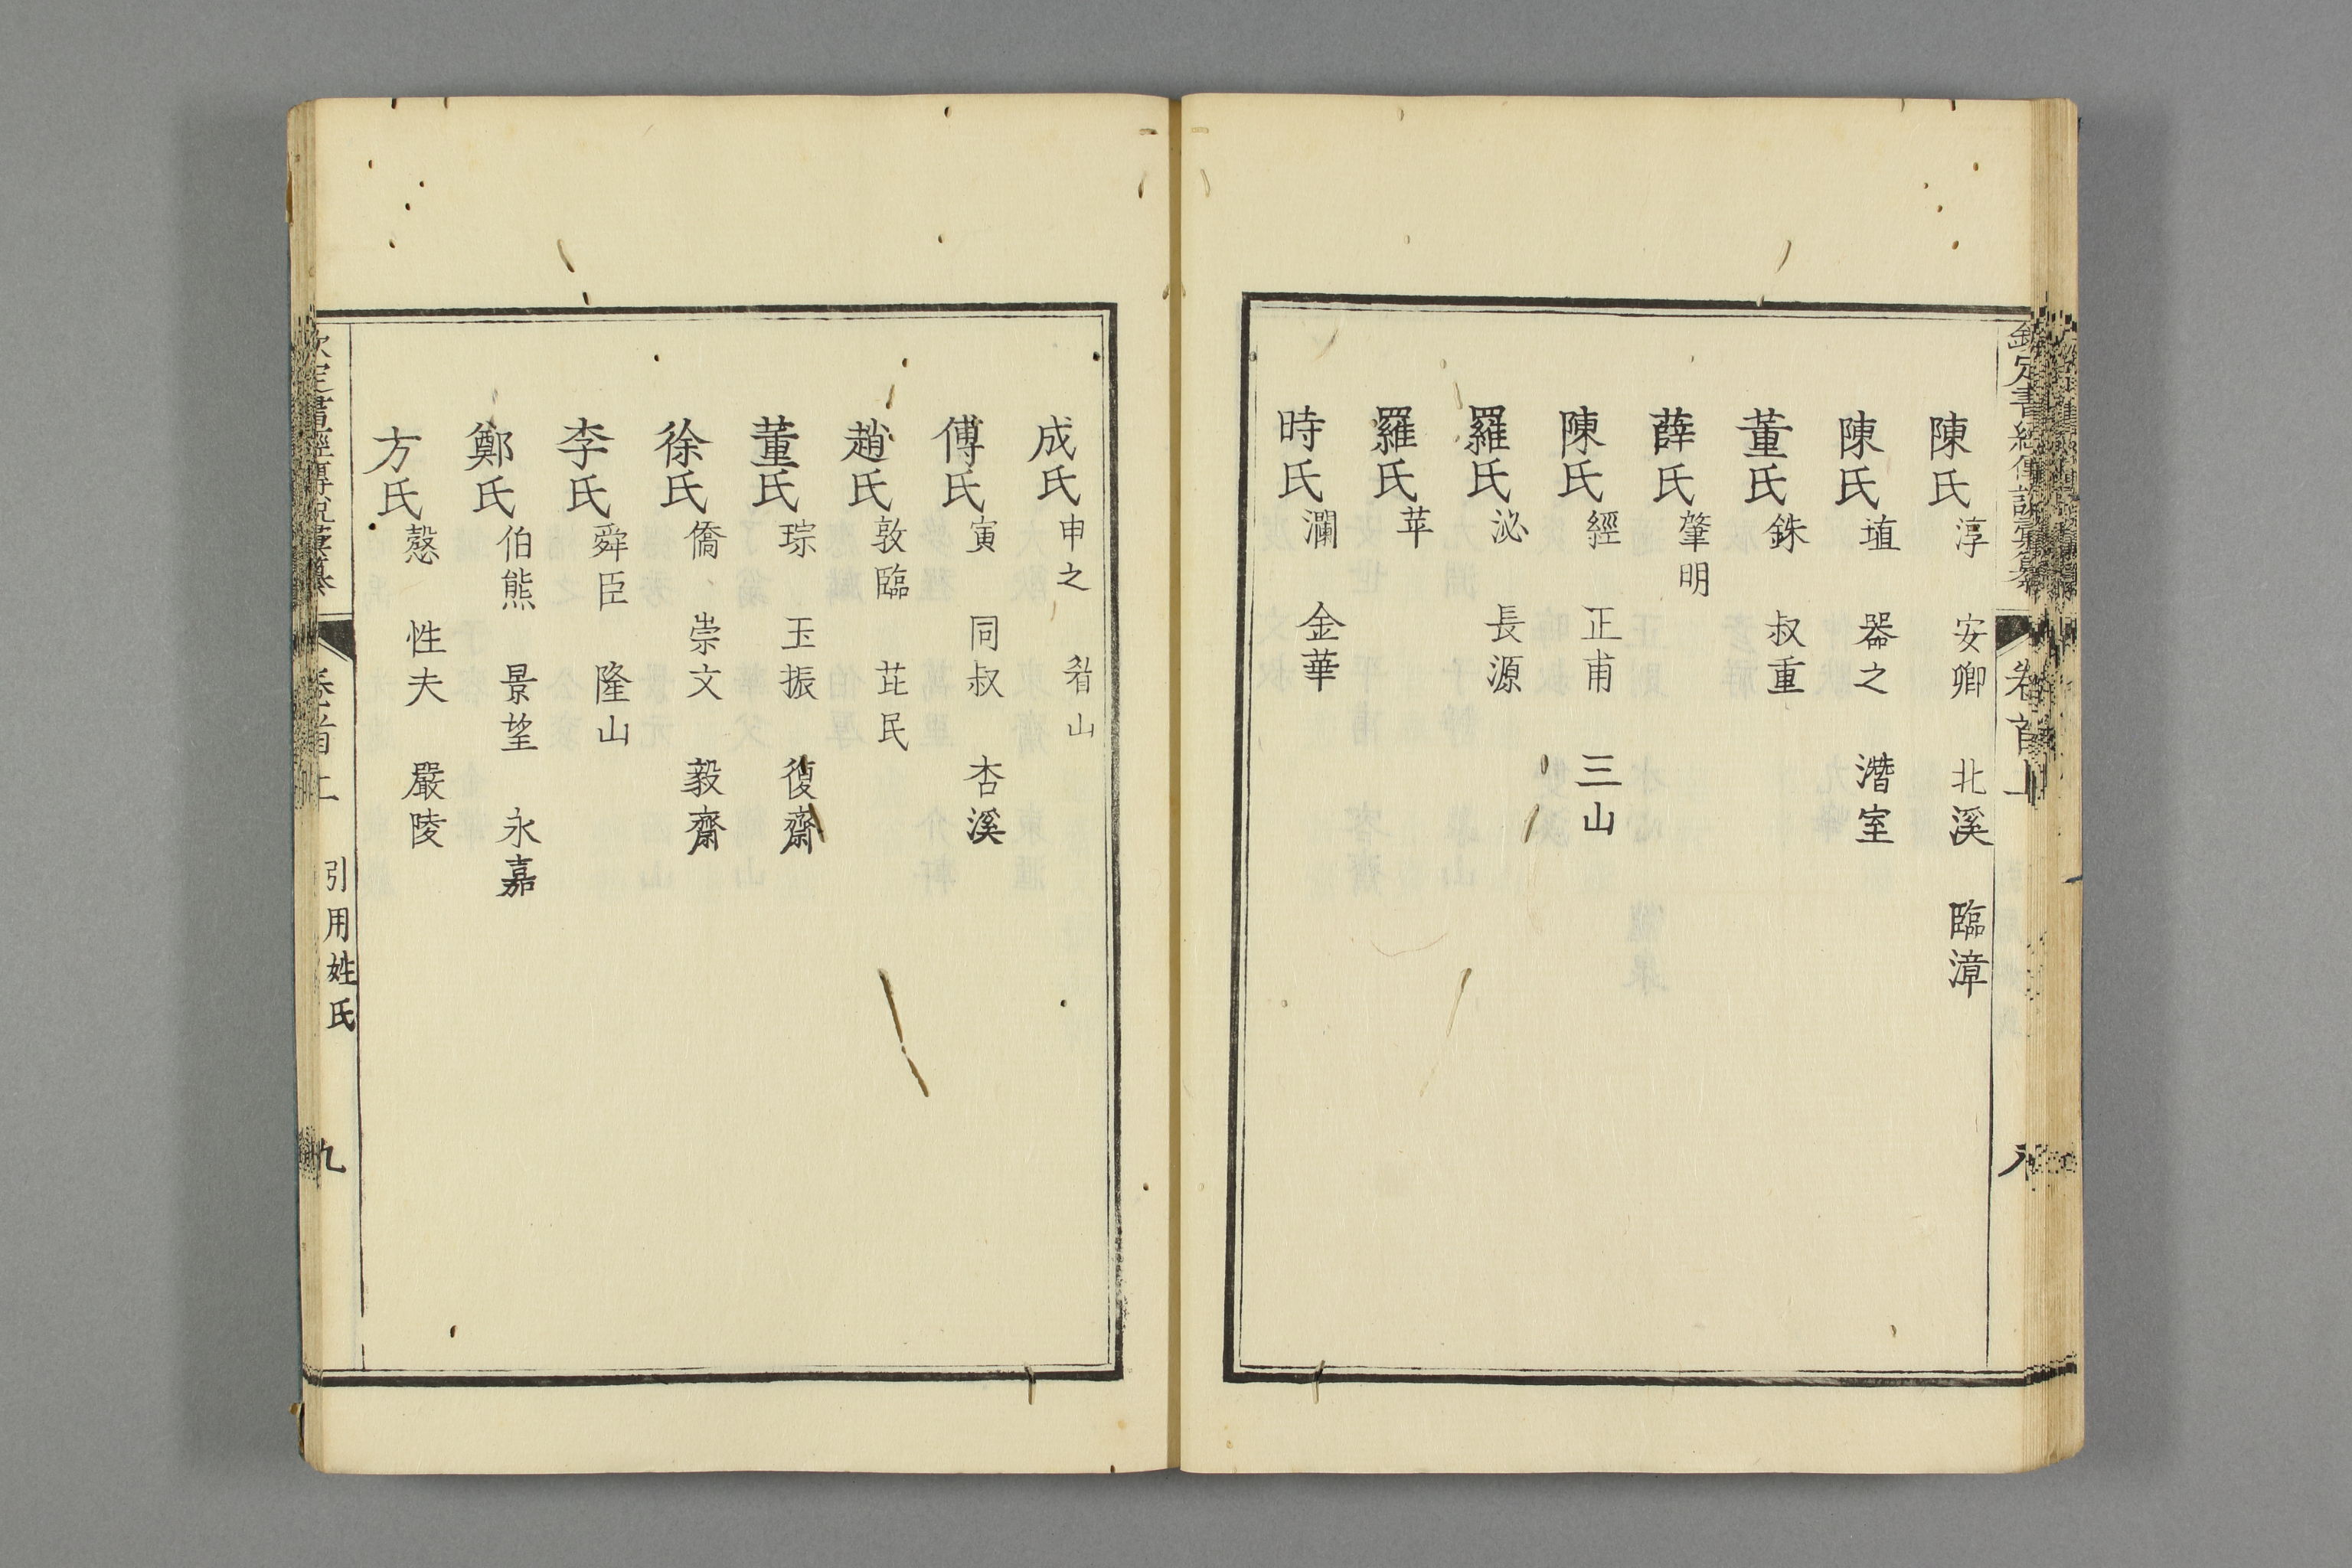 欽定書經傳說彙纂 卷首上 八
陳氏 淳 安卿 北溪 臨漳
陳氏 埴 器之 潛室
董氏 銖 叔重
薛氏 肇明
陳氏 經 正甫 三山
羅氏 泌 長源
羅氏 苹
時氏 瀾 金華
成氏 申之 眉山
傅氏 寅 同叔 杏溪
趙氏 敦臨 芘民
董氏 琮 玉振 復齋
徐氏 僑 崇文 毅齋
李氏 舜臣 隆山
鄭氏 伯熊 景望 永嘉
方氏 慤 性夫 嚴陵
欽定書經傳說彙纂 卷首上 引用姓氏 九